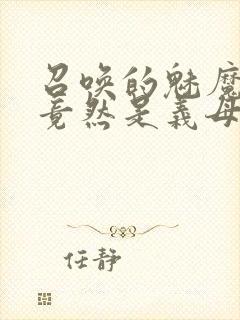 召唤的魅魔
竟然是义母
任静